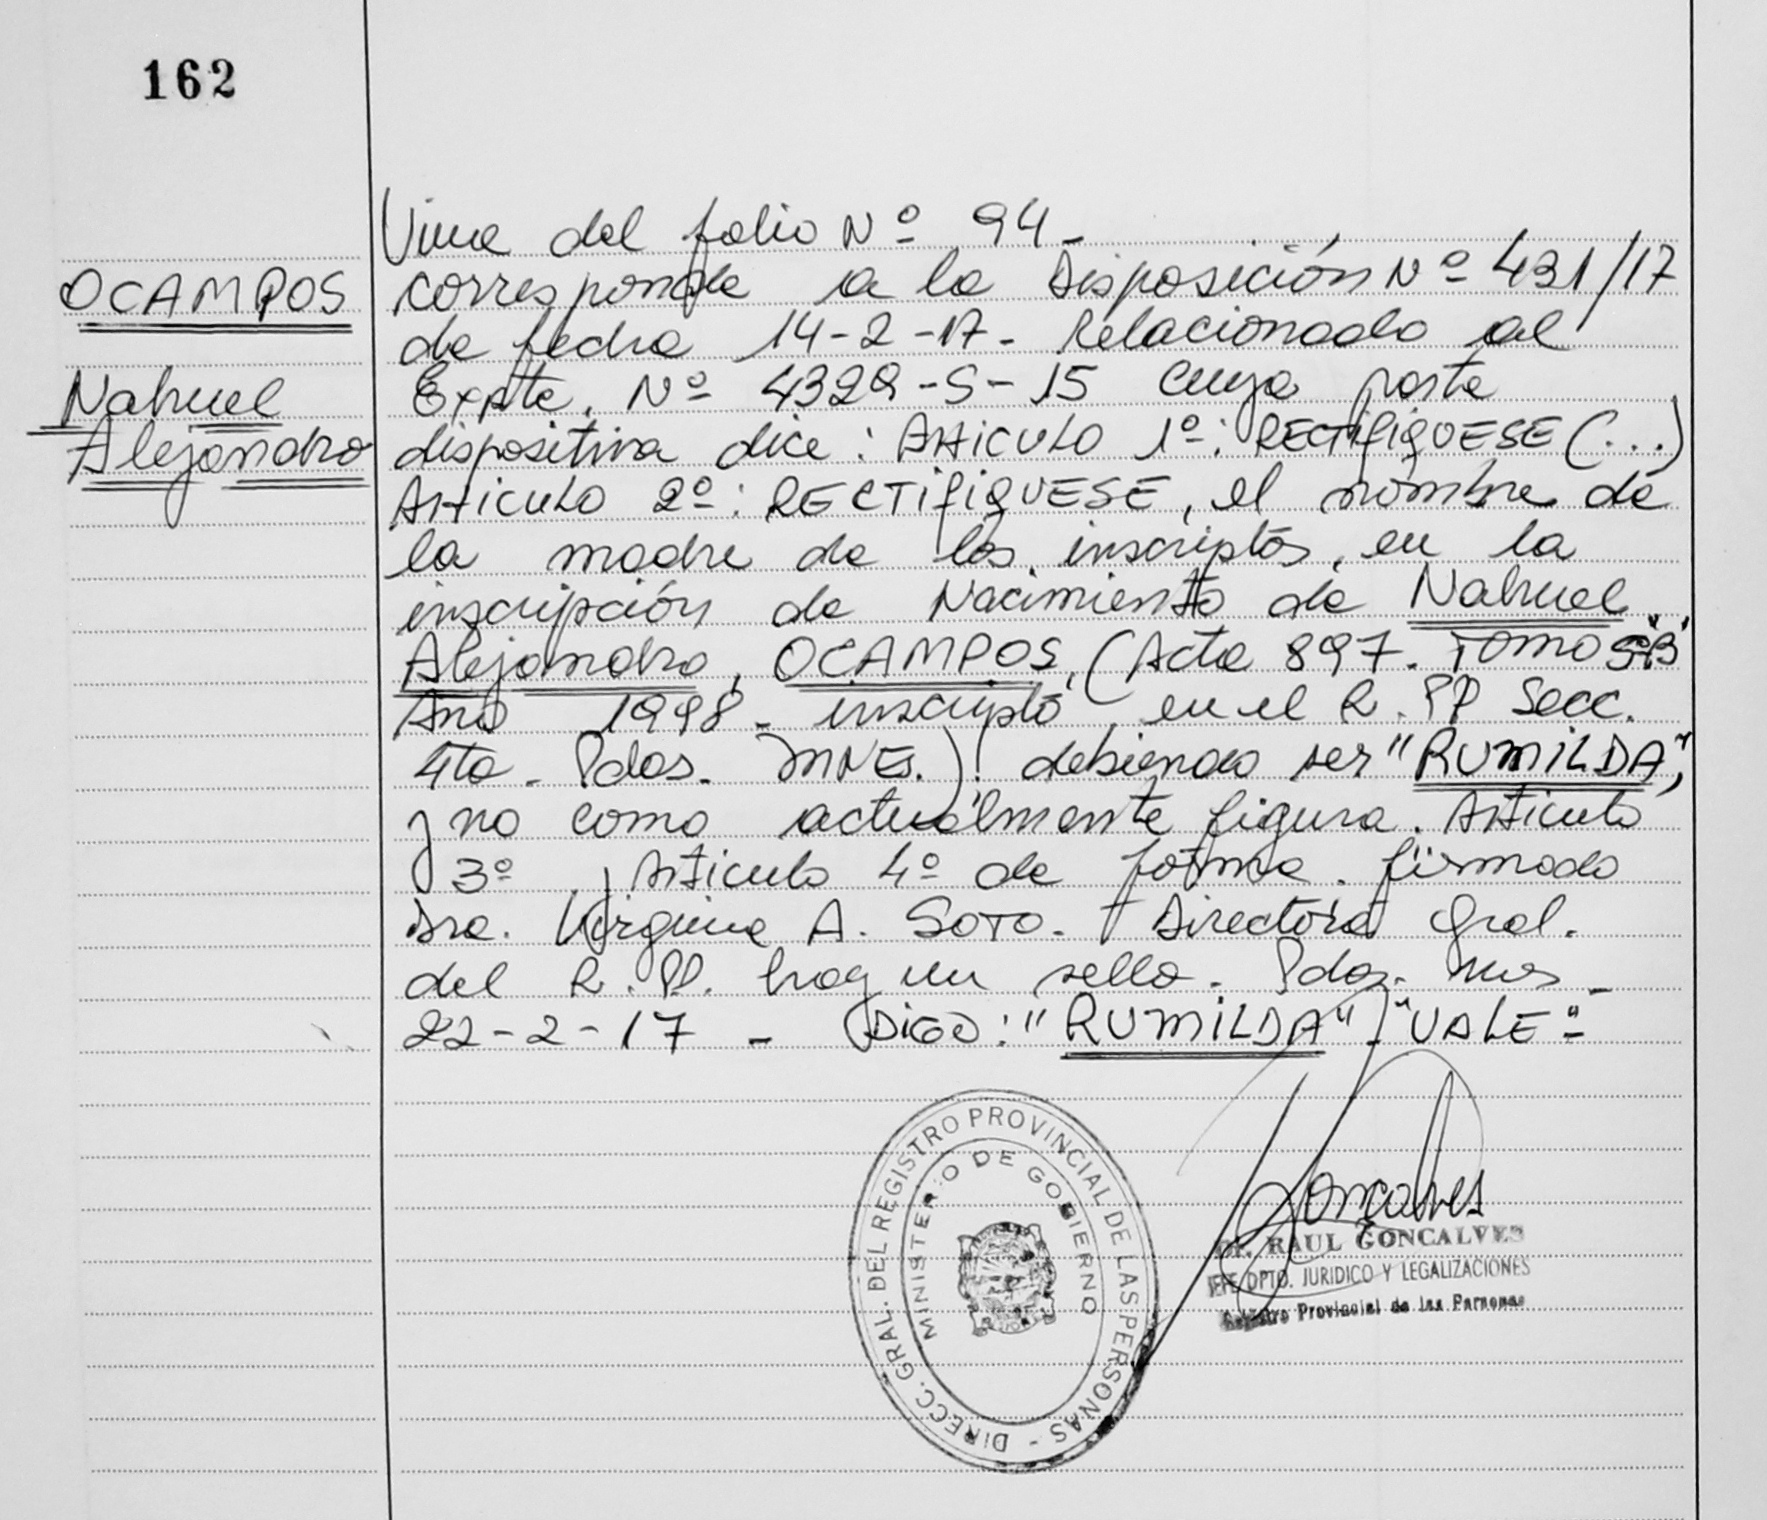 162
OCAMPOS
Nahuel
Alejandro
Viene del folio Nº 94 -
corresponde a la Disposición Nº 431/17
de fecha 14-2-17. Relacionado al
Expte. Nº 4329-S-15 cuya parte
dispositiva dice: Articulo 1º: RECTIFIQUESE (...)
Articulo 2º: RECTIFIQUESE, el nombre de
la madre de los inscriptos, en la
inscripción de Nacimiento de Nahuel
Alejandro, OCAMPOS, (Acta 897. Tomo
Año 1998 - inscripto en el R. PP Secc.
4ta - Pdas. MNES.) debiendo ser "RUMILDA",
y no como actualmente figura. Articulo
3º y Articulo 4º de forma. firmado
Dra. Virginia A. Soto - Directora Gral.
del R. PP. hay un sello. Pdas. Mnes -
22-2-17 - Digo: "RUMILDA" - "VALE" -
DIRECC. GRAL. DEL REGISTRO PROVINCIAL DE LAS PERSONAS -
MINISTERIO DE GOBIERNO
Goncalves
Dr. RAUL GONCALVES
JEFE DPTO. JURIDICO Y LEGALIZACIONES
Registro Provincial de las Personas